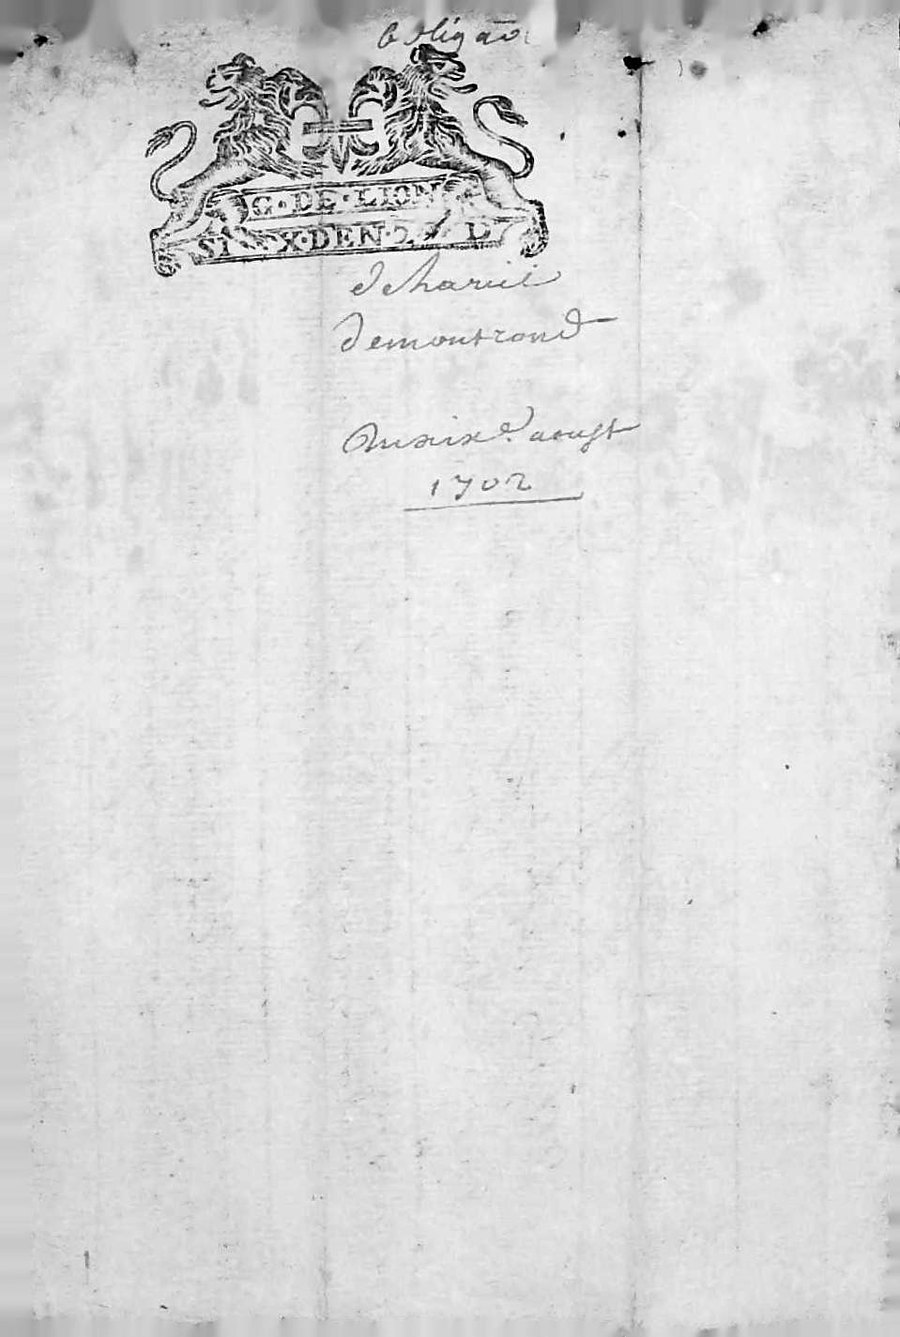 obligaō
G·DE·LION
SI X·DEN· D
de harieil
demontrond
du sixe. aoust
1702